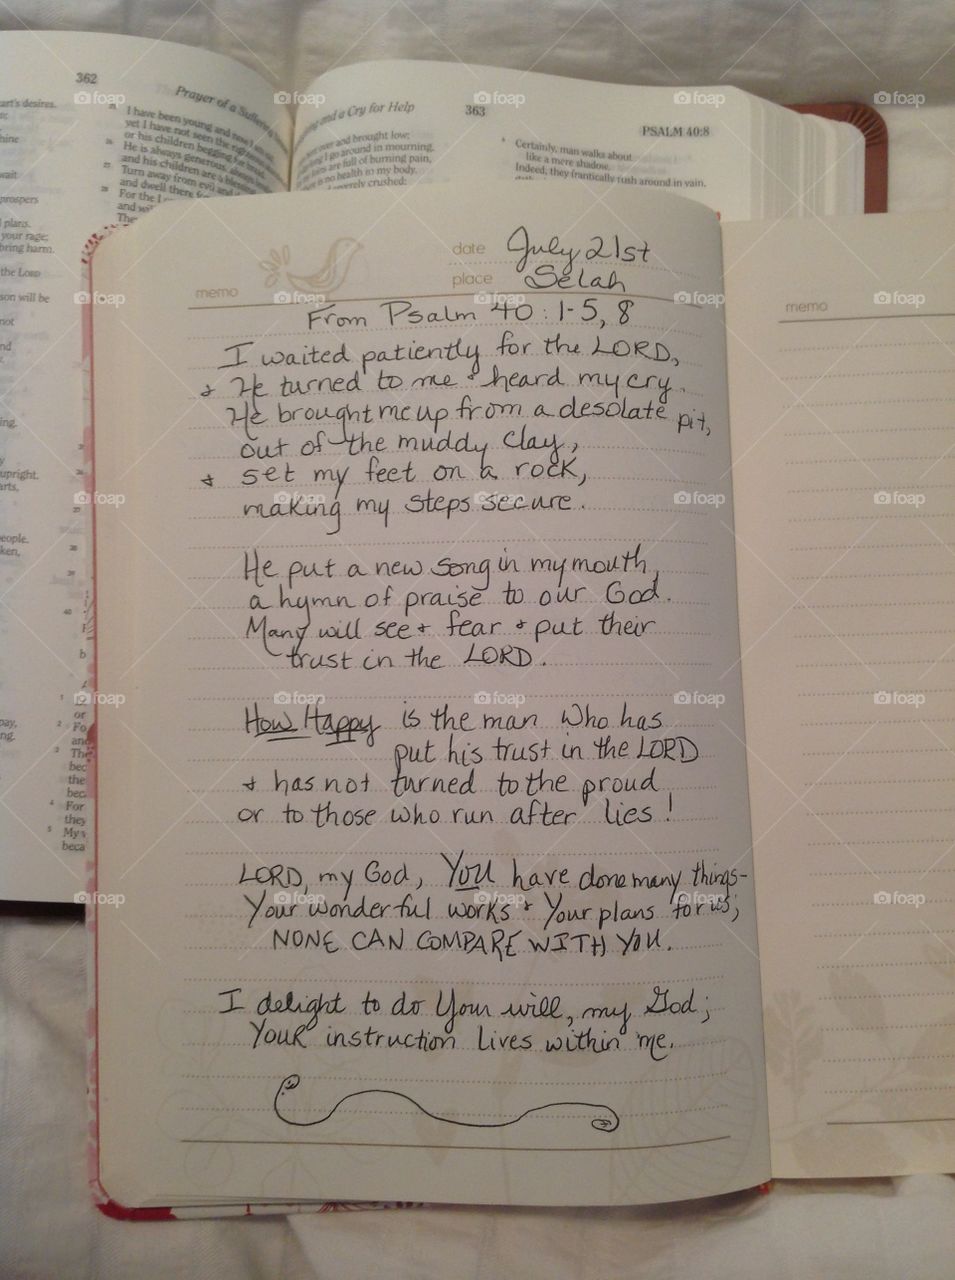 362
Prayer of a
and a Cry for Help
363
PSALM 40:8
art's desires.
I have been young and now
yet I have not seen the
or his children begging
He is always generous,
and his children are a
Turn away from evil
and dwell there
For the
and brought low;
I go around in mourning.
are full of burning pain,
is no health in my body.
severely crushed;
Certainly, man walks about
like a mere shadow.
Indeed, they frantically rush around in vain,
wait
prospers
plans.
your rage;
bring harm.
the LORD
son will be
not
upright.
people.
date July 21st
place Selah
memo
From Psalm 40:1-5, 8
I waited patiently for the LORD,
+ He turned to me + heard my cry.
He brought me up from a desolate pit,
out of the muddy clay,
+ set my feet on a rock,
making my steps secure.
He put a new song in my mouth,
a hymn of praise to our God.
Many will see + fear + put their
trust in the LORD.
How Happy is the man who has
put his trust in the LORD
+ has not turned to the proud
or to those who run after lies!
LORD, my God, YOU have done many things-
Your wonderful works + Your plans for us;
NONE CAN COMPARE WITH YOU.
I delight to do Your will, my God;
YOUR instruction lives within me.
memo
foap